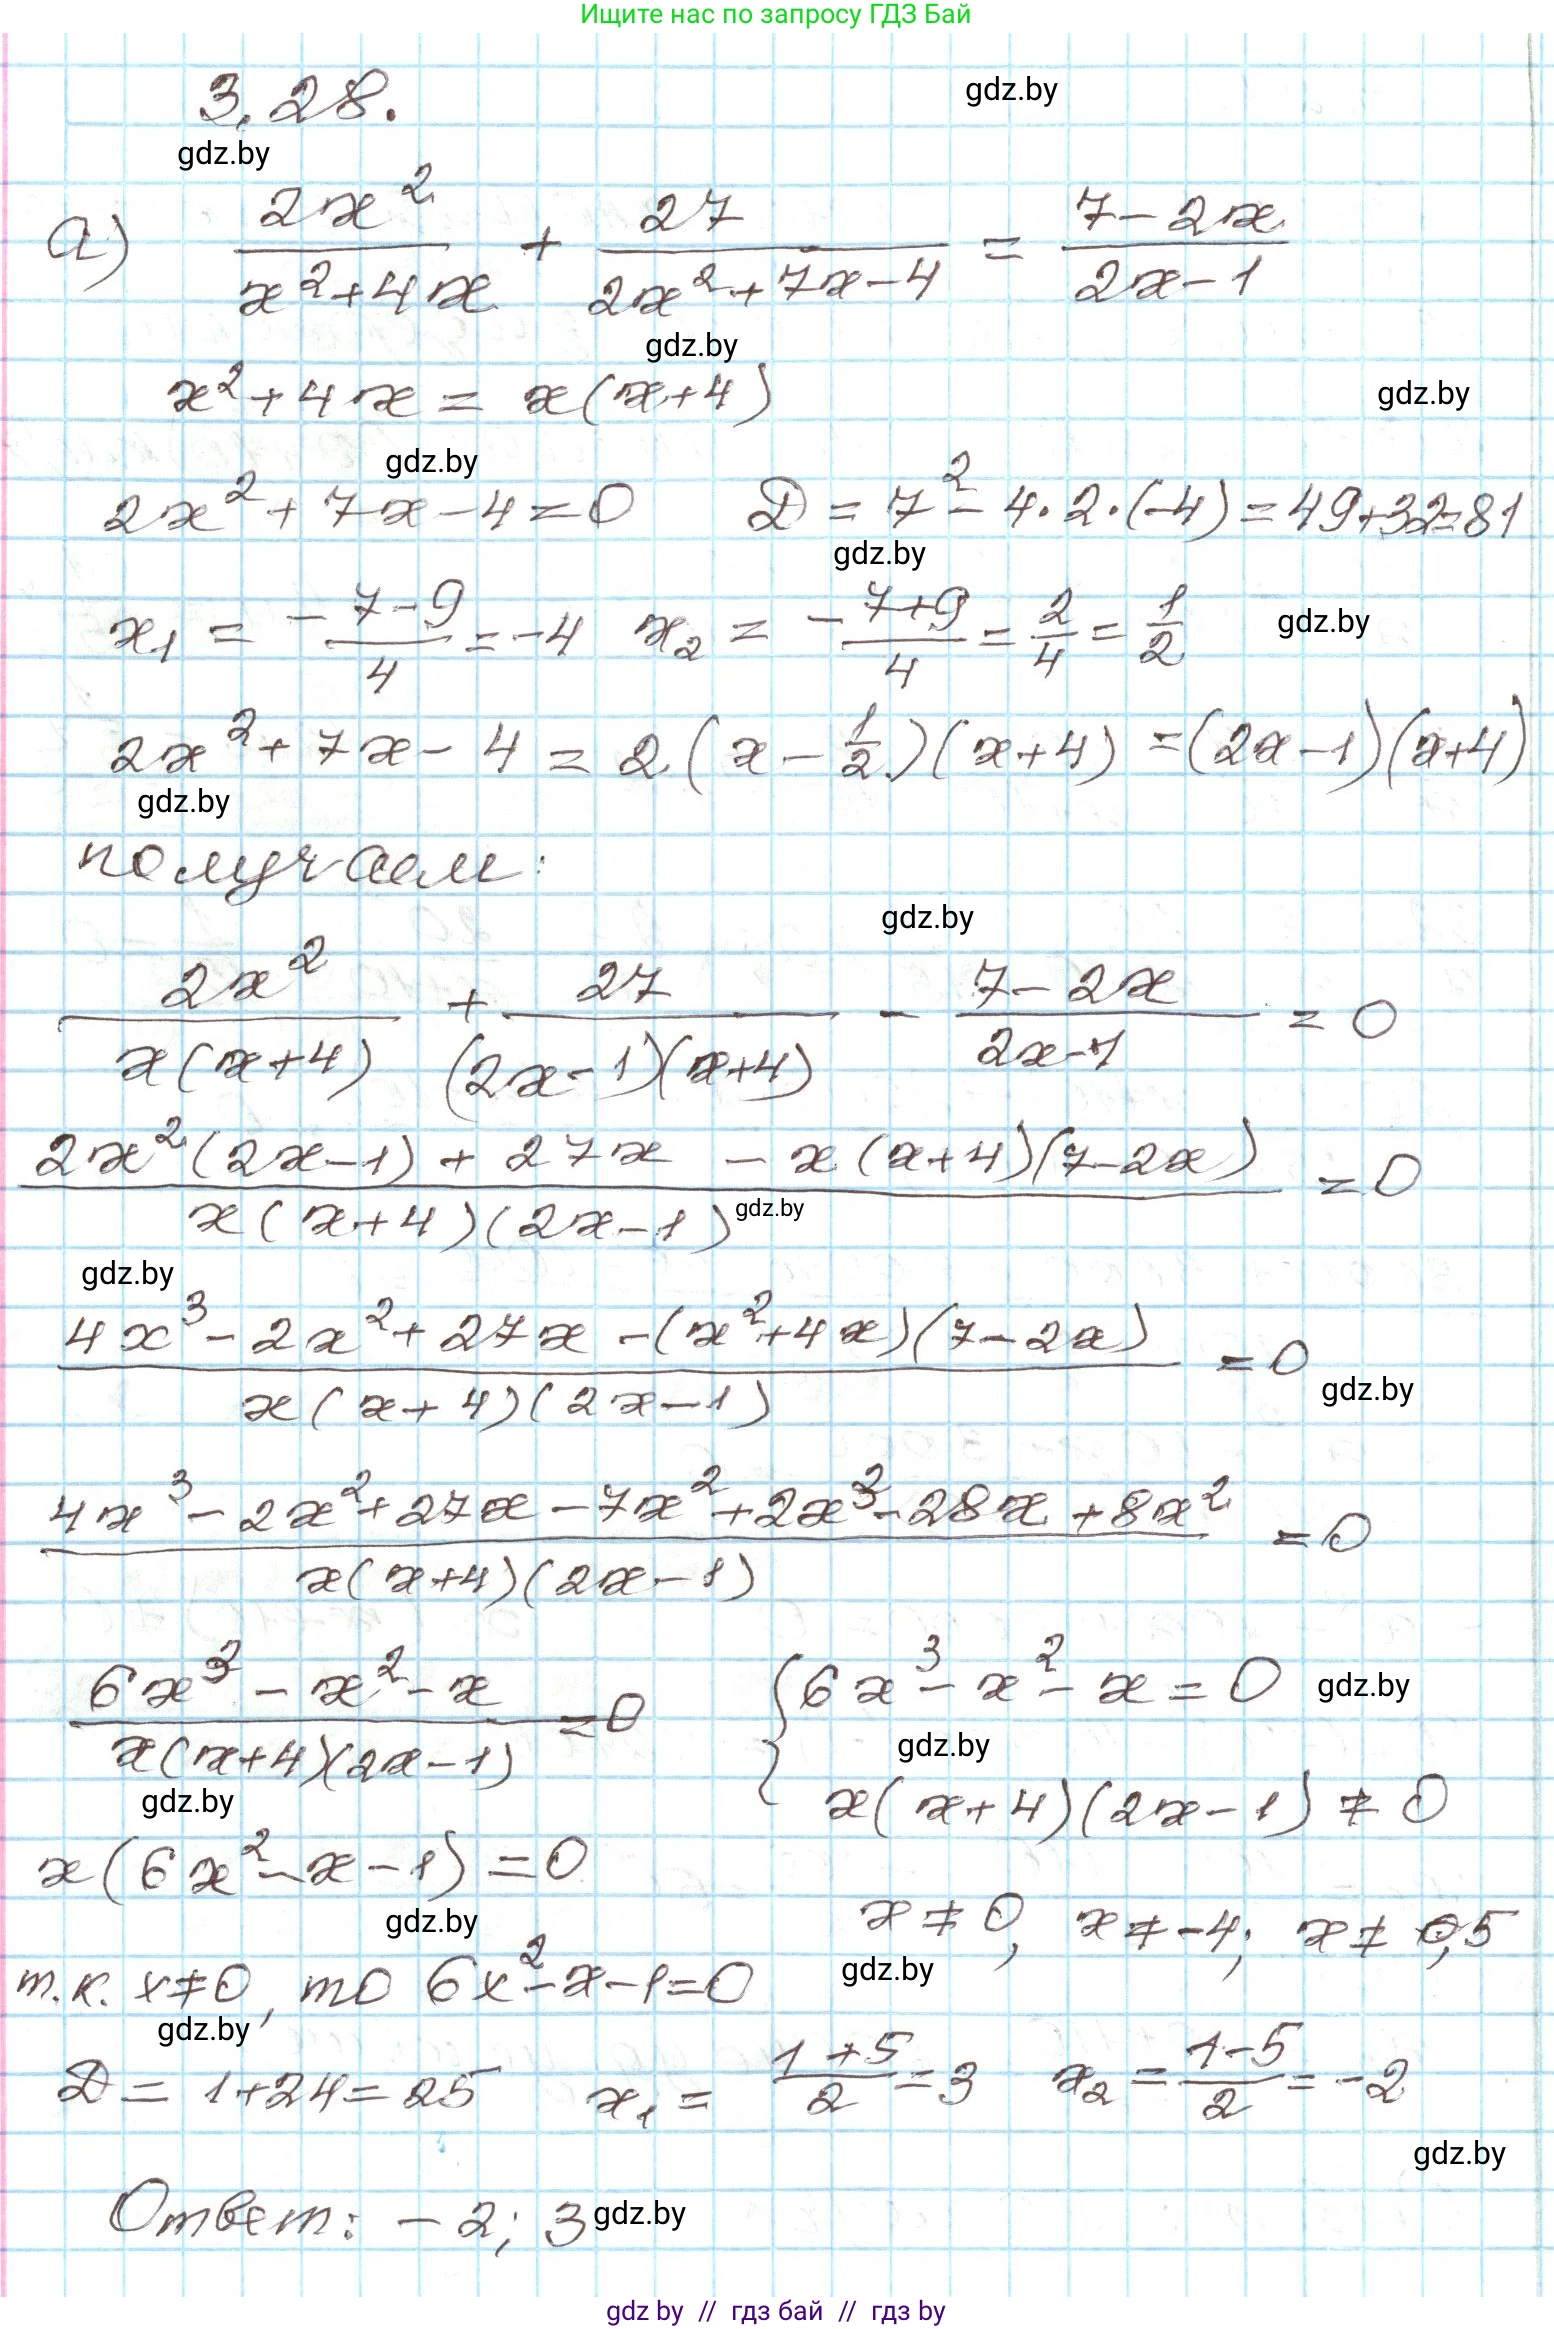 Ищите нас по запросу ГДЗ Бай
3.28.
gdz.by
gdz.by
а) 2x²/(x²+4x) + 27/(2x²+7x-4) = (7-2x)/(2x-1)
gdz.by
x²+4x = x(x+4)
gdz.by
gdz.by
2x²+7x-4=0 D = 7²-4·2·(-4)=49+32=81
gdz.by
x₁ = -(7-9)/4 = -4 x₂ = -(7+9)/4 = 2/4 = 1/2
gdz.by
2x²+7x-4 = 2(x-1/2)(x+4) =(2x-1)(x+4)
gdz.by
получаем:
gdz.by
2x²/(x(x+4)) + 27/((2x-1)(x+4)) - (7-2x)/(2x-1) = 0
(2x²(2x-1) + 27x - x(x+4)(7-2x))/(x(x+4)(2x-1)) = 0
gdz.by
gdz.by
(4x³-2x²+27x-(x²+4x)(7-2x))/(x(x+4)(2x-1)) = 0
gdz.by
(4x³-2x²+27x-7x²+2x³-28x+8x²)/(x(x+4)(2x-1)) = 0
(6x³-x²-x)/(x(x+4)(2x-1)) = 0 { 6x³-x²-x=0
gdz.by
gdz.by
gdz.by
x(x+4)(2x-1) ≠ 0
x(6x²-x-1)=0
gdz.by
x≠0, x≠-4; x≠0,5
gdz.by
т.к. x≠0, то 6x²-x-1=0
gdz.by
D = 1+24=25 x₁ = (1+5)/2 = 3 x₂ = (1-5)/2 = -2
gdz.by
Ответ: -2; 3
gdz.by
gdz by // гдз бай // гдз by